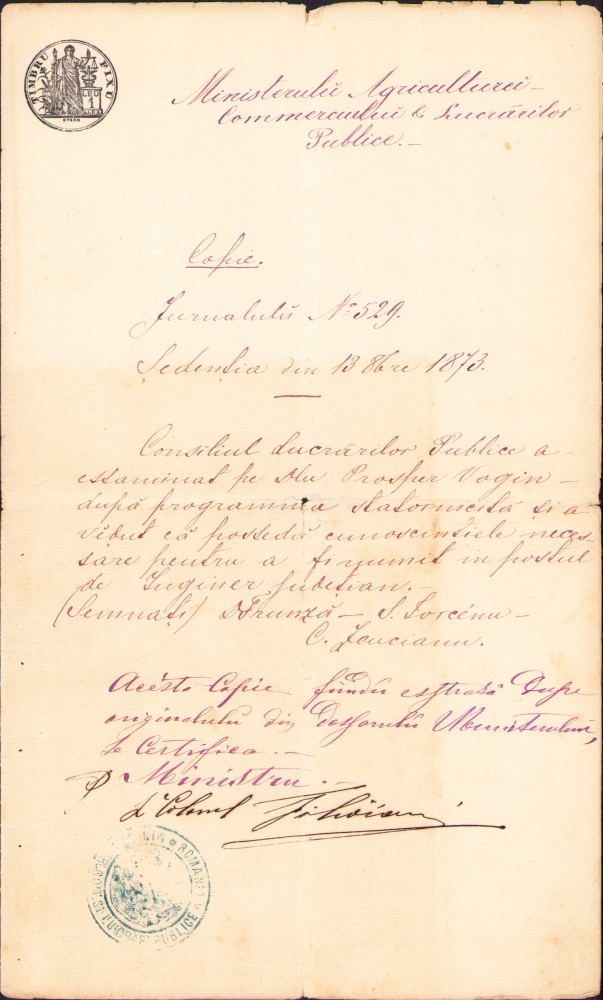 TIMBRU FIXU
LEU
1
Ministerulŭ Agriculturei
Commerciuluĭ & Lucrărilor
Publice. —
Copie.
Jurnalulŭ No 529.
Ședenția din 13 8bre 1873.
Consiliul Lucrărilor Publice a
essaminat pe Dlu Prosper Vogin —
după programma statornicită și a
vĕdut că posedă cunoscintiele neces-
sare pentru a fi numit in postul
de Inginer judesian. —
(Semnați) D Frunză — S. Sorcénu —
C. Zeucianu.
Acésta Copie fiindŭ esstrasă Dupe
originalulu din Dossarulŭ Ministerului,
se Certifica. —
p Ministru. —
Lt Colonel
ROMANIA
LUCRARI PUBLICE